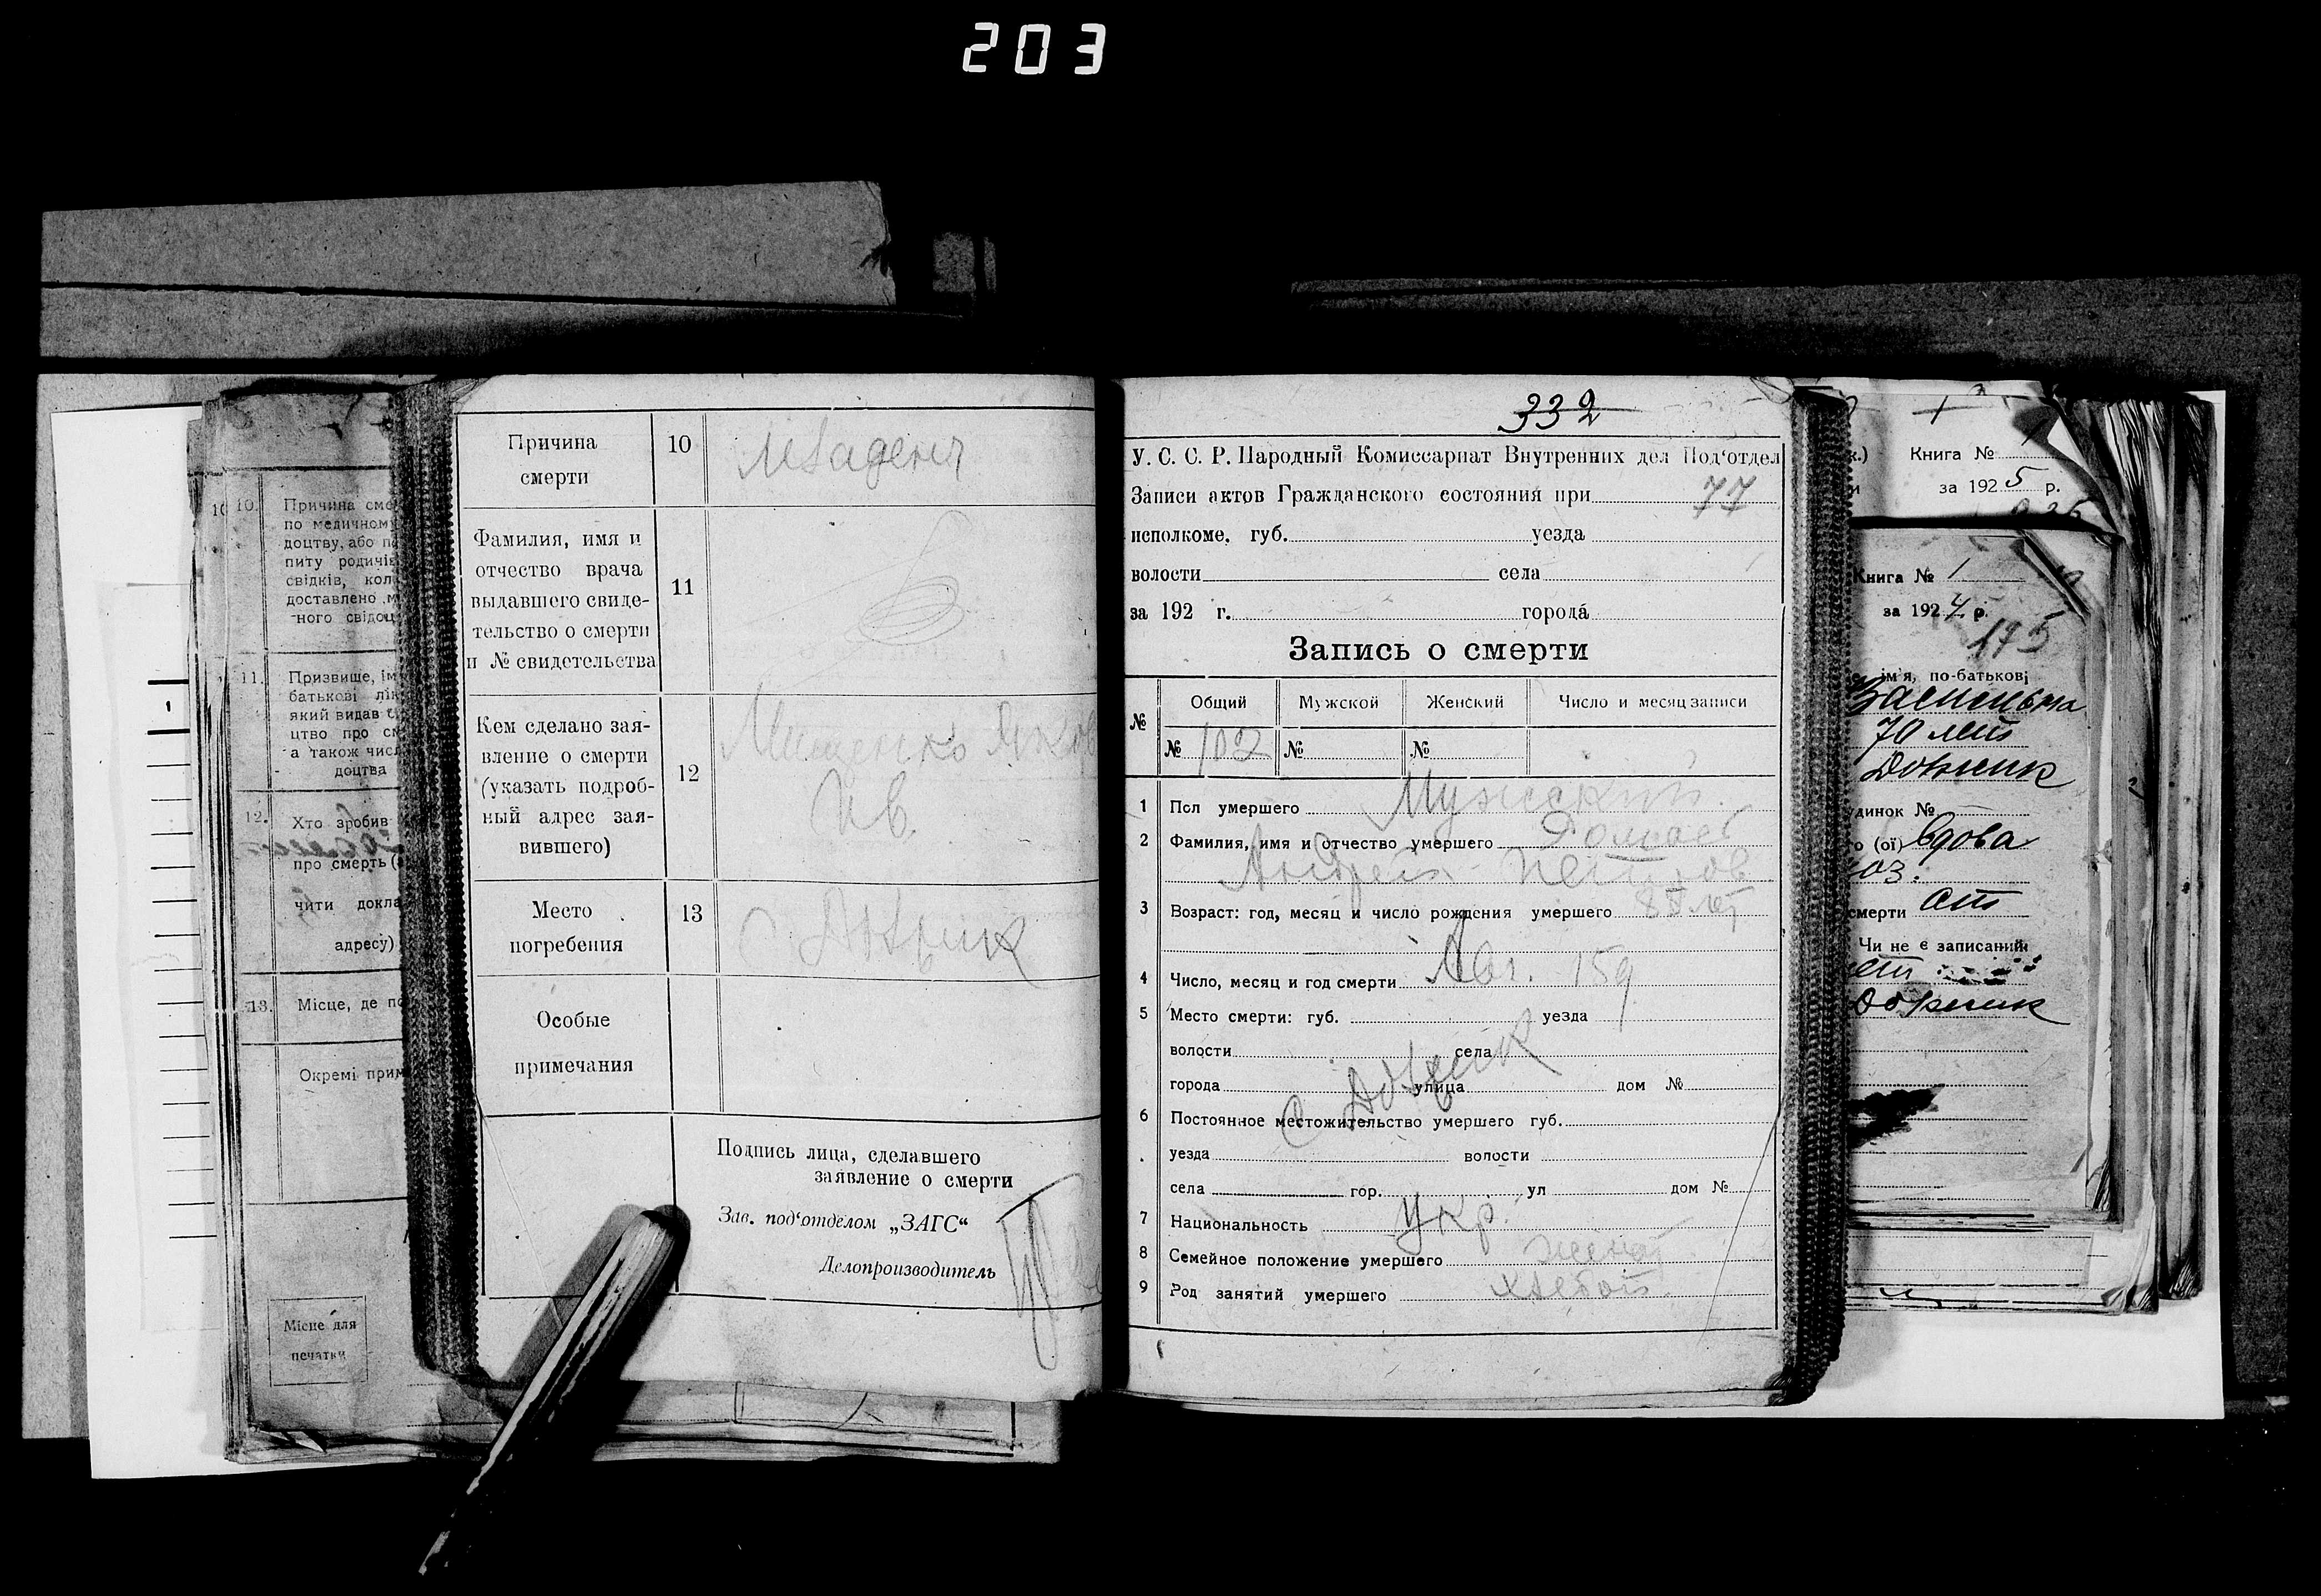 203
10
10.
Причина сме
по медичному
доцтву, або п
питу родичів
свідків, кол
доставлено м
ного свідоц
11.
Призвище, ім
батькові лік
який видав с
цтво про см
а також числ
доцтва
12.
Хто зробив
про смерть (
чити докла
адресу)
13.
Місце, де по
Окремі прим
Місце для
печатки
Причина
смерти
10
Младенч
Фамилия, имя и
отчество врача
выдавшего свиде-
тельство о смерти
и № свидетельства
11
Кем сделано зая-
вление о смерти
(указать подроб-
ный адрес зая-
вившего)
12
Мищенко Яков
Ив.
Место
погребения
13
С. Добрик
Особые
примечания
Подпись лица, сделавшего
заявление о смерти
Зав. под‘отделом „ЗАГС“
Делопроизводитель
332
У. С. С. Р. Народный Комиссариат Внутренних дел Под‘отдел
Записи актов Гражданского состояния при 77
исполкоме, губ. уезда
волости села
за 192 г. города
Запись о смерти
№ Общий Мужской Женский Число и месяц записи
№ 102 № №
1 Пол умершего Мужский
2 Фамилия, имя и отчество умершего
Андрей Петров
3 Возраст: год, месяц и число рождения умершего лет
4 Число, месяц и год смерти Авг. 159
5 Место смерти: губ. уезда
волости села
города улица дом №
С Добрик
6 Постоянное местожительство умершего губ.
уезда волости
села гор. ул дом №
7 Национальность Укр.
8 Семейное положение умершего женат
9 Род занятий умершего хлебоп.
к.) Книга № 1
и за 1925 р.
Книга № 1
за 1924 р.
175
ім'я, по-батькові
70 лет
Добрик
удинок №
го (ої) Вдова
смерти
Чи не є записаний
Добрик